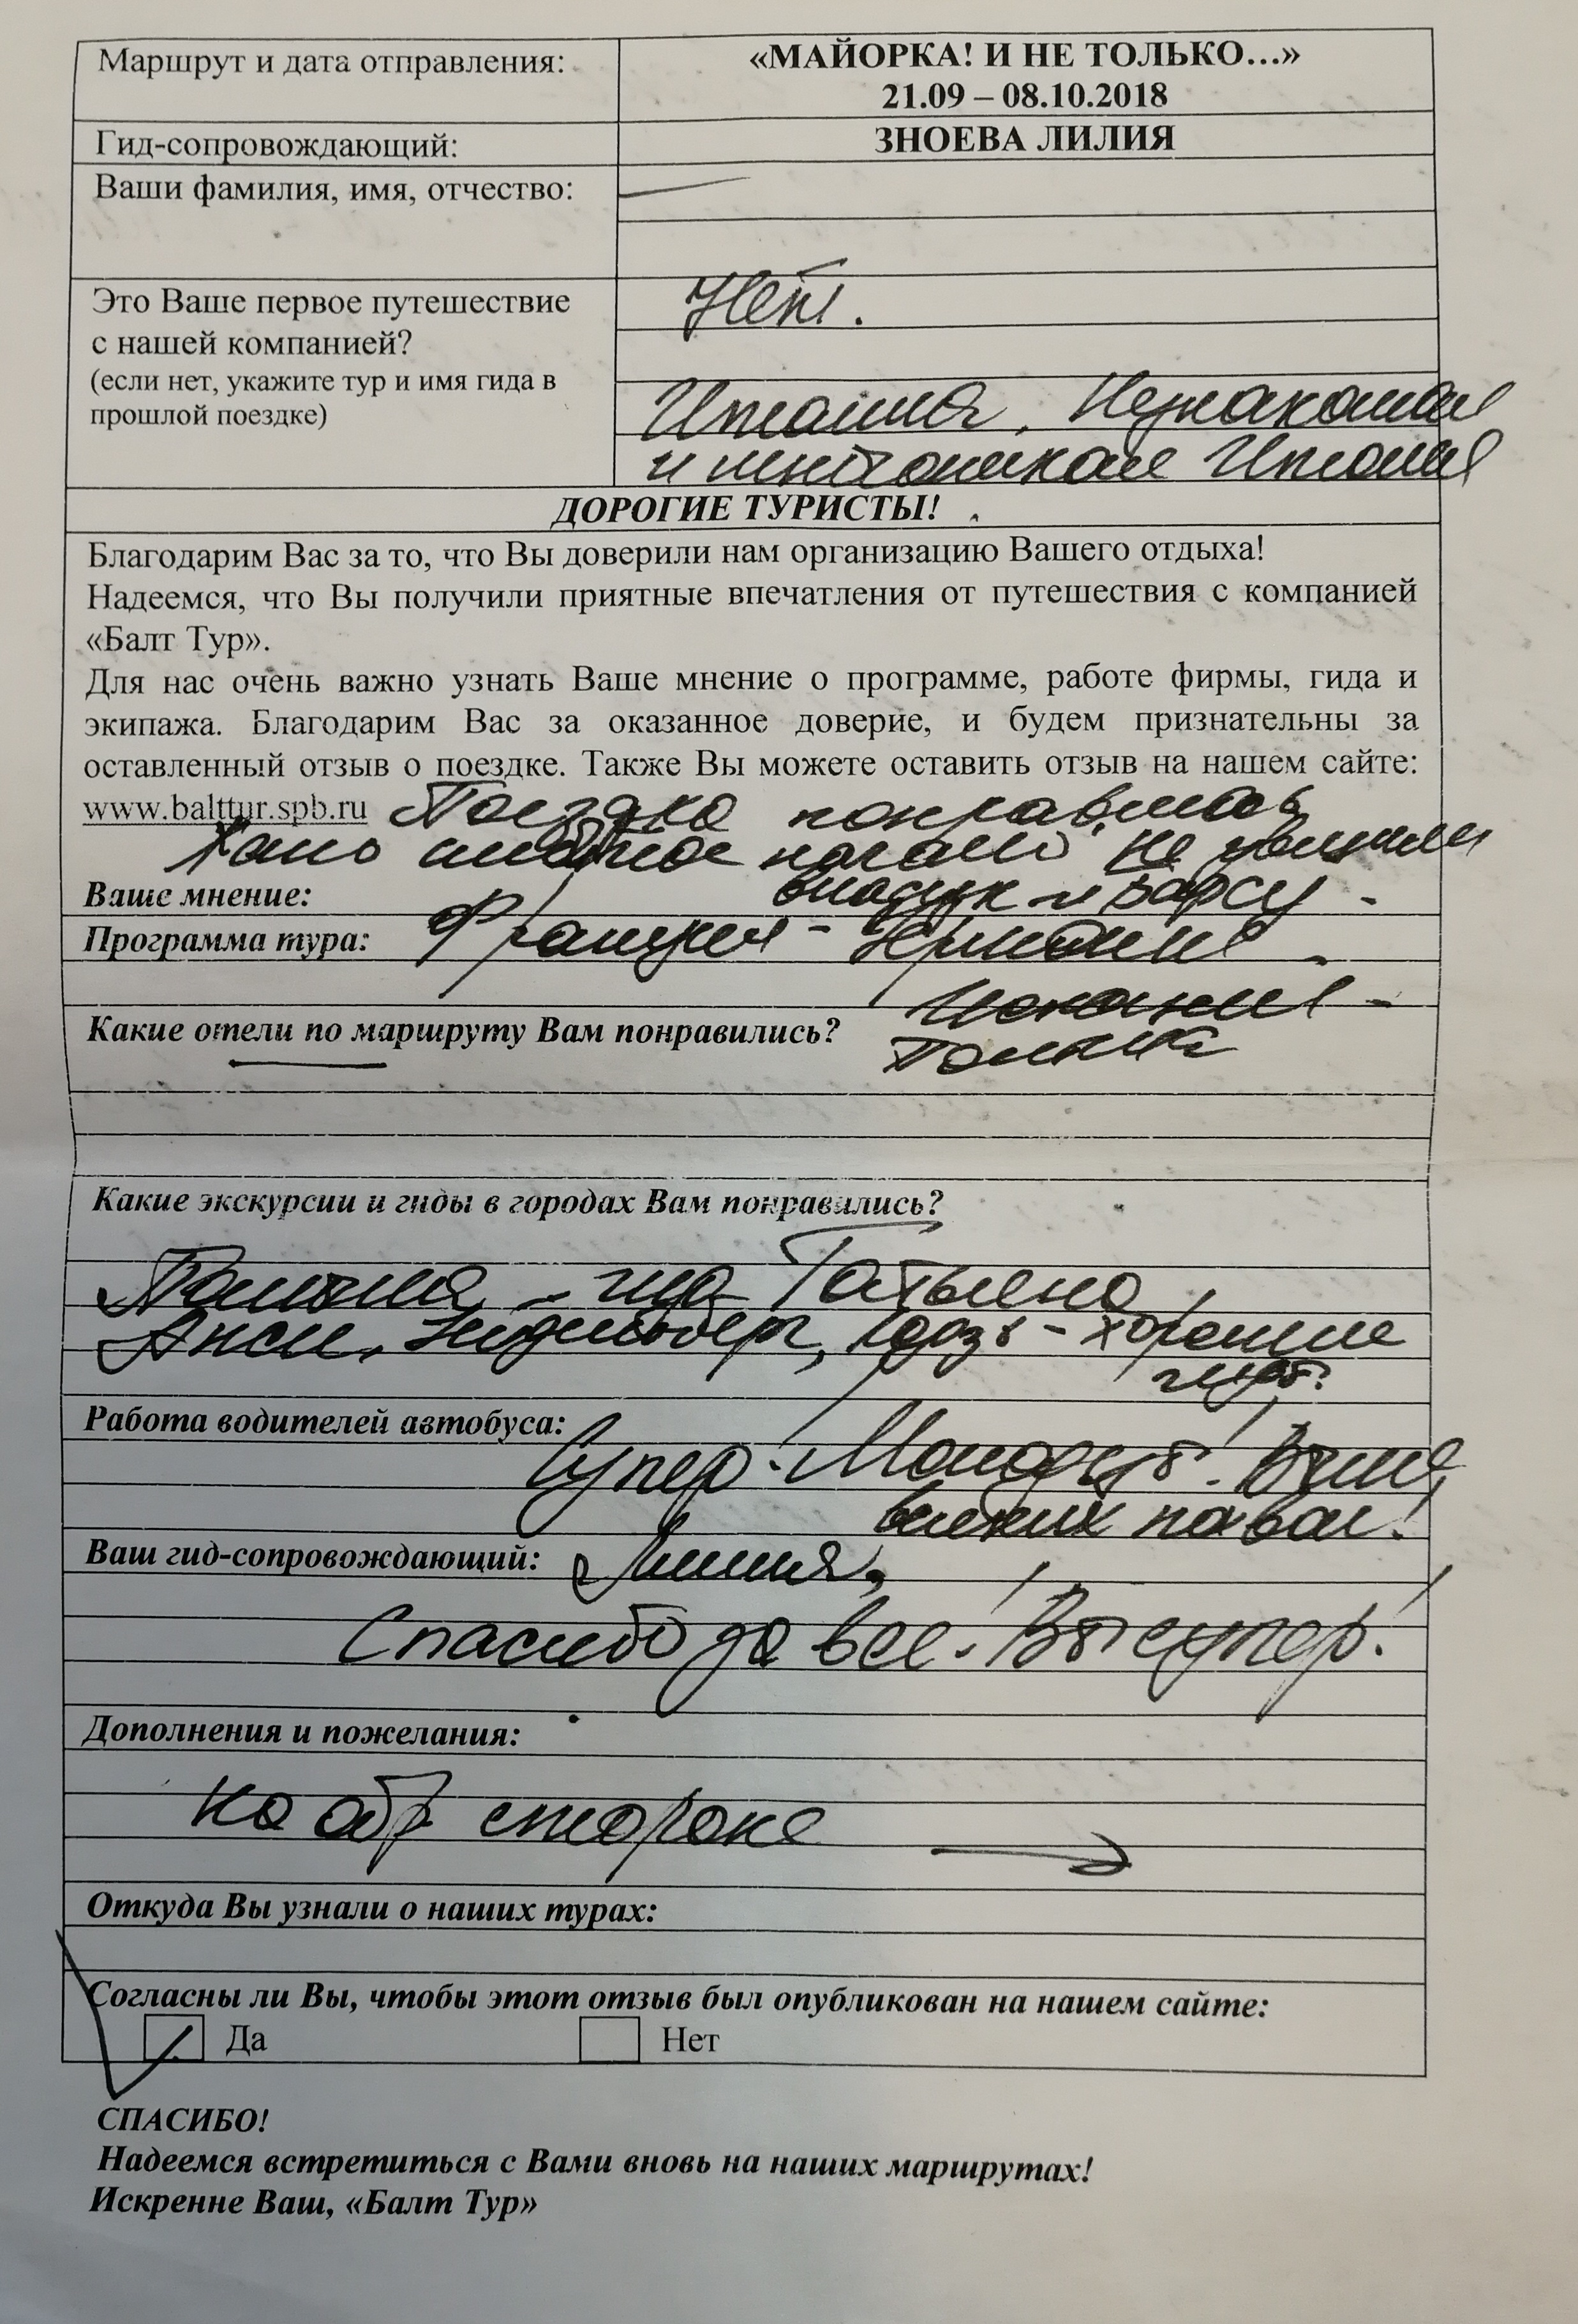 Маршрут и дата отправления:
«МАЙОРКА! И НЕ ТОЛЬКО...»
21.09 – 08.10.2018
Гид-сопровождающий:
ЗНОЕВА ЛИЛИЯ
Ваши фамилия, имя, отчество:
Это Ваше первое путешествие
с нашей компанией?
(если нет, укажите тур и имя гида в
прошлой поездке)
Нет.
Италия, Незнакомая
и Италия
ДОРОГИЕ ТУРИСТЫ!
Благодарим Вас за то, что Вы доверили нам организацию Вашего отдыха!
Надеемся, что Вы получили приятные впечатления от путешествия с компанией
«Балт Тур».
Для нас очень важно узнать Ваше мнение о программе, работе фирмы, гида и
экипажа. Благодарим Вас за оказанное доверие, и будем признательны за
оставленный отзыв о поездке. Также Вы можете оставить отзыв на нашем сайте:
www.balttur.spb.ru Поездка понравилась
не увидели
Ваше мнение: виадук и
Программа тура: Франция -
Испания -
Какие отели по маршруту Вам понравились? Польша
Какие экскурсии и гиды в городах Вам понравились?
Пальма - гид Татьяна
Анси, Лодзь - хорошие
гиды.
Работа водителей автобуса:
Супер! Молодцы!
великих похвал!
Ваш гид-сопровождающий: Лилия,
Спасибо за все! Вы супер!
Дополнения и пожелания:
на обр стороне
Откуда Вы узнали о наших турах:
Согласны ли Вы, чтобы этот отзыв был опубликован на нашем сайте:
Да Нет
СПАСИБО!
Надеемся встретиться с Вами вновь на наших маршрутах!
Искренне Ваш, «Балт Тур»